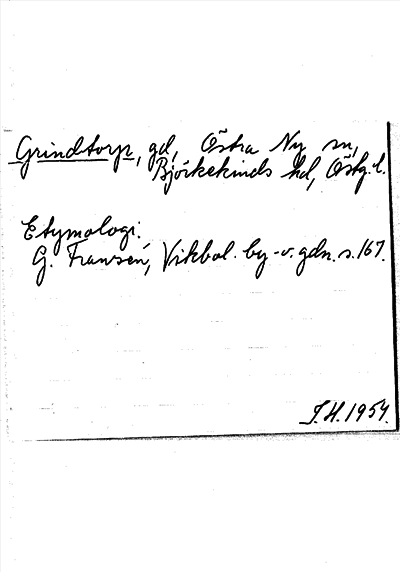 Grindtorp, gd, Östra Ny sn,
Björkekinds hd, Östg. l.
Etymologi:
G. Fransén, Vikbol. by- o. gdn. s. 167.
J.H. 1954.